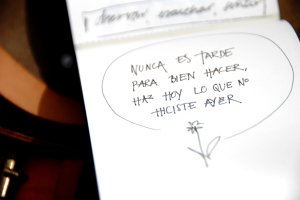 NUNCA ES TARDE
PARA BIEN HACER,
HAZ HOY LO QUE NO
HICISTE AYER